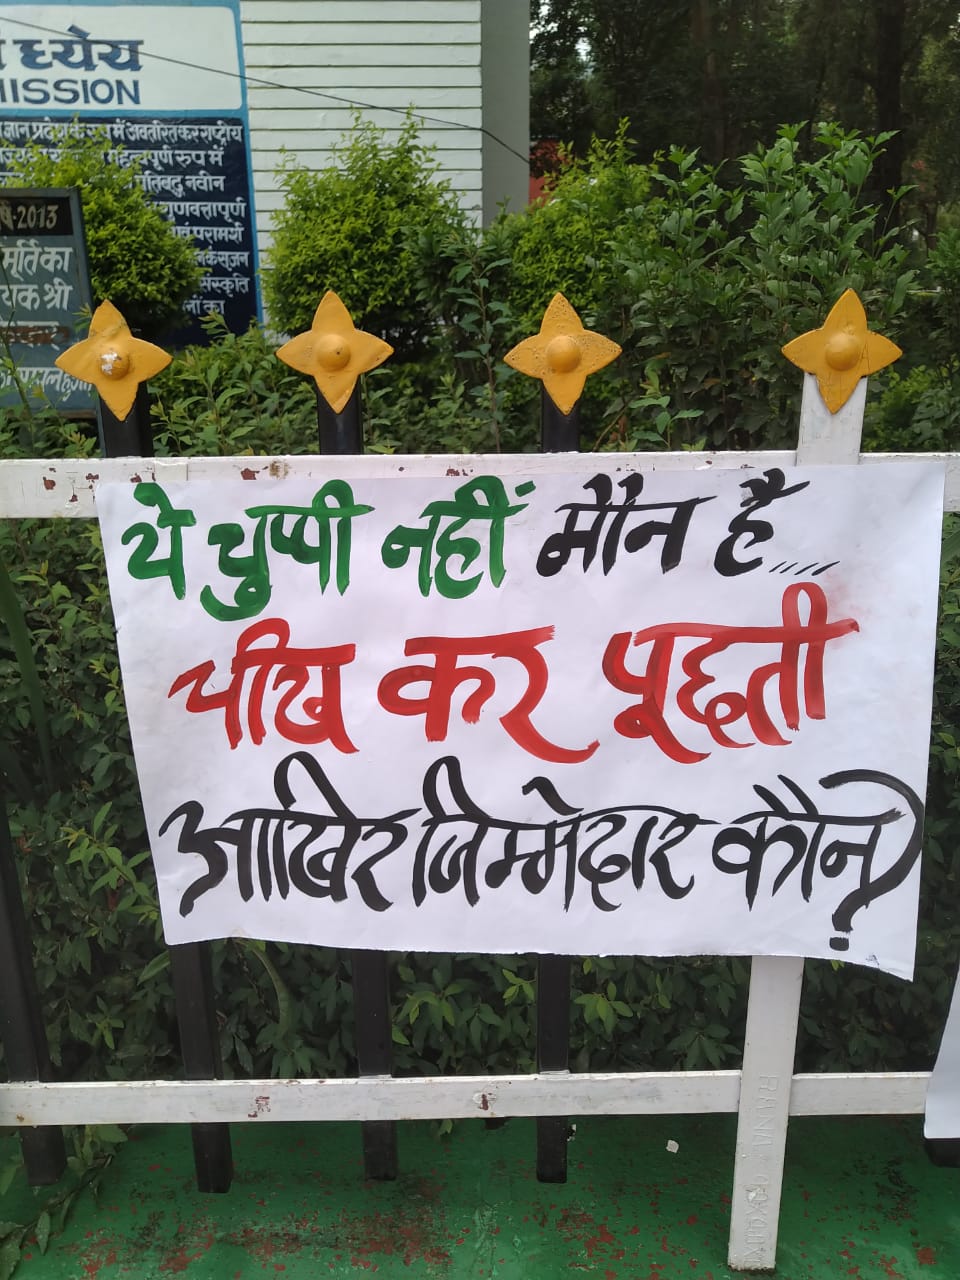 ध्येय
MISSION
ज्ञान प्रदेश के रूप में अवतरित कर राष्ट्रीय
महत्वपूर्ण रुप में
नवीन
गुणवत्तापूर्ण
एवं परामर्श
सृजन
संस्कृति
का
2013
मूर्ति का
श्री
ये चुप्पी नहीं मौन है....
चीख कर पूछती
आखिर जिम्मेदार कौन?